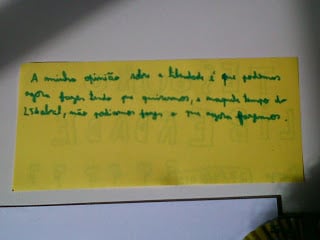 A minha opinião sobre a liberdade é que podemos
agora fazer tudo que queremos, e naquele tempo do
25 de abril, não podiamos fazer o que agora fazemos.